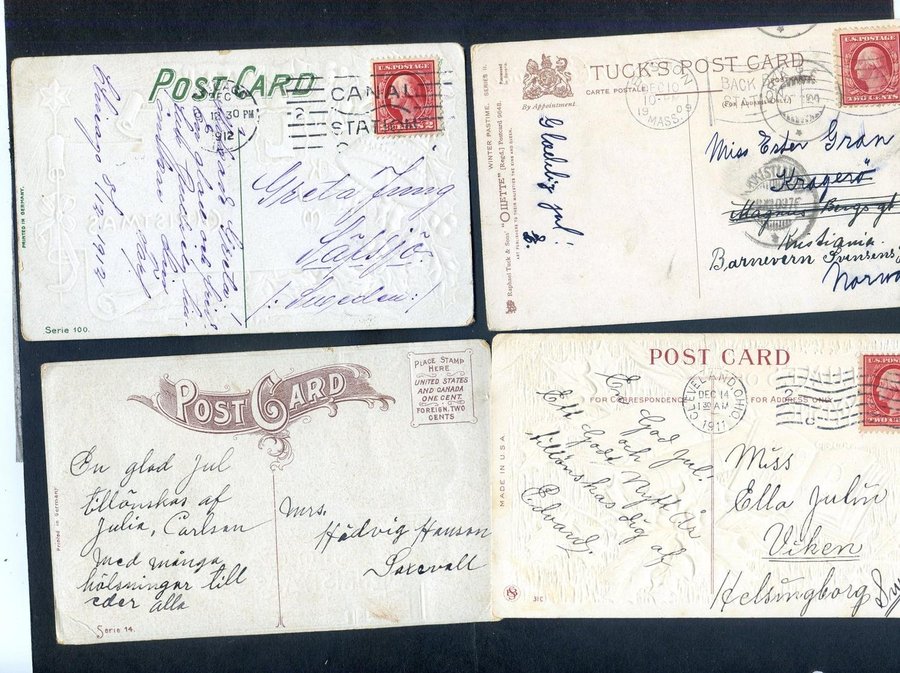 POST CARD
DEC 8
12 30 PM
1912
CANAL
STATION
2
U.S. POSTAGE
CENTS 2
Chicago 8/12 1912
Greta Jung
Säfsjö
/: Sweden :/
PRINTED IN GERMANY.
Serie 100.
TUCK'S POST CARD
CARTE POSTALE
(FOR ADDRESS ONLY)
By Appointment
BOSTON
DEC 10
19 09
MASS.
BACK BAY
U.S. POSTAGE
TWO CENTS
Raphael Tuck & Sons' "OILETTE" (Regd.) Postcard 9648.
WINTER PASTIME. SERIES II.
ART PUBLISHERS TO THEIR MAJESTIES THE KING AND QUEEN.
Glædelig jul!
E.
Miss Ester Gran
Kragerø
Magnus Bergs gt
Kristiania.
Barnevern Svinsens
Norwa
POST CARD
PLACE STAMP
HERE
UNITED STATES
AND CANADA
ONE CENT.
FOREIGN, TWO
CENTS
En glad Jul
tillönskas af
Julia, Carlsen
med många
hölsningar till
eder alla
Mrs.
Hådvig Hanson
Saxevall
Printed in Germany
Serie 14.
POST CARD
FOR CORRESPONDENCE
FOR ADDRESS ONLY
CLEVELAND, OHIO
DEC 14
1 30 AM
1911
U.S. POSTAGE
En God Jul.
och
Ett Godt Nytt År
tillönskas dig af
Edvard.
Miss
Ella Julin
Viken
Helsingborg
MADE IN U.S.A.
31C